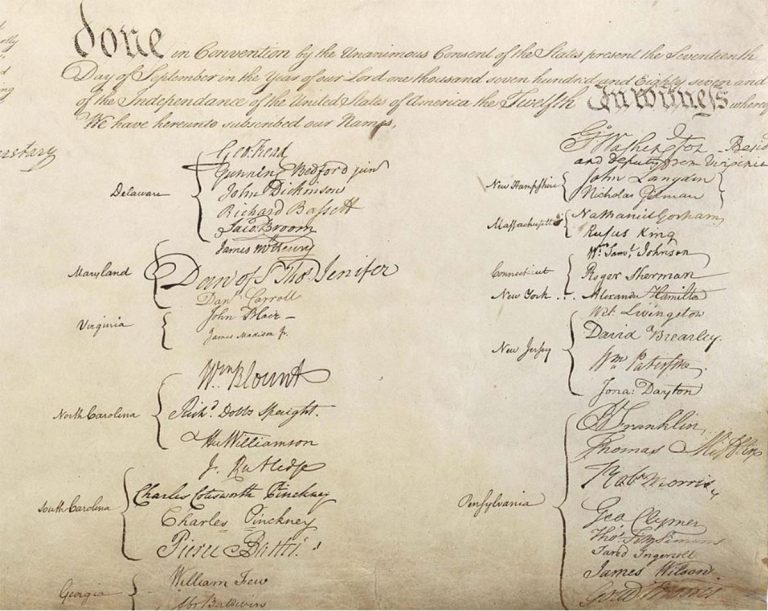 done in Convention by the Unanimous Consent of the States present the Seventeenth
Day of September in the Year of our Lord one thousand seven hundred and Eighty seven and
of the Independance of the United States of America the Twelfth In Witness
We have hereunto subscribed our Names,
Delaware
Geo: Read
Gunning Bedford jun
John Dickinson
Richard Bassett
Jaco: Broom
Maryland
James McHenry
Dan of St Thos. Jenifer
Danl Carroll
Virginia
John Blair—
James Madison Jr.
North Carolina
Wm Blount
Richd. Dobbs Spaight.
Hu Williamson
South Carolina
J. Rutledge
Charles Cotesworth Pinckney
Charles Pinckney
Pierce Butler.
Georgia
William Few
Abr Baldwin
Go. Washington
and deputy from Virginia
New Hampshire
John Langdon
Nicholas Gilman
Massachusetts
Nathaniel Gorham
Rufus King
Connecticut
Wm. Saml. Johnson
Roger Sherman
New York . . .
Alexander Hamilton
New Jersey
Wil. Livingston
David Brearley.
Wm. Paterson.
Jona: Dayton
Pensylvania
B Franklin
Thomas Mifflin
Robt Morris
Geo. Clymer
Thos. FitzSimons
Jared Ingersoll
James Wilson
Gouv Morris